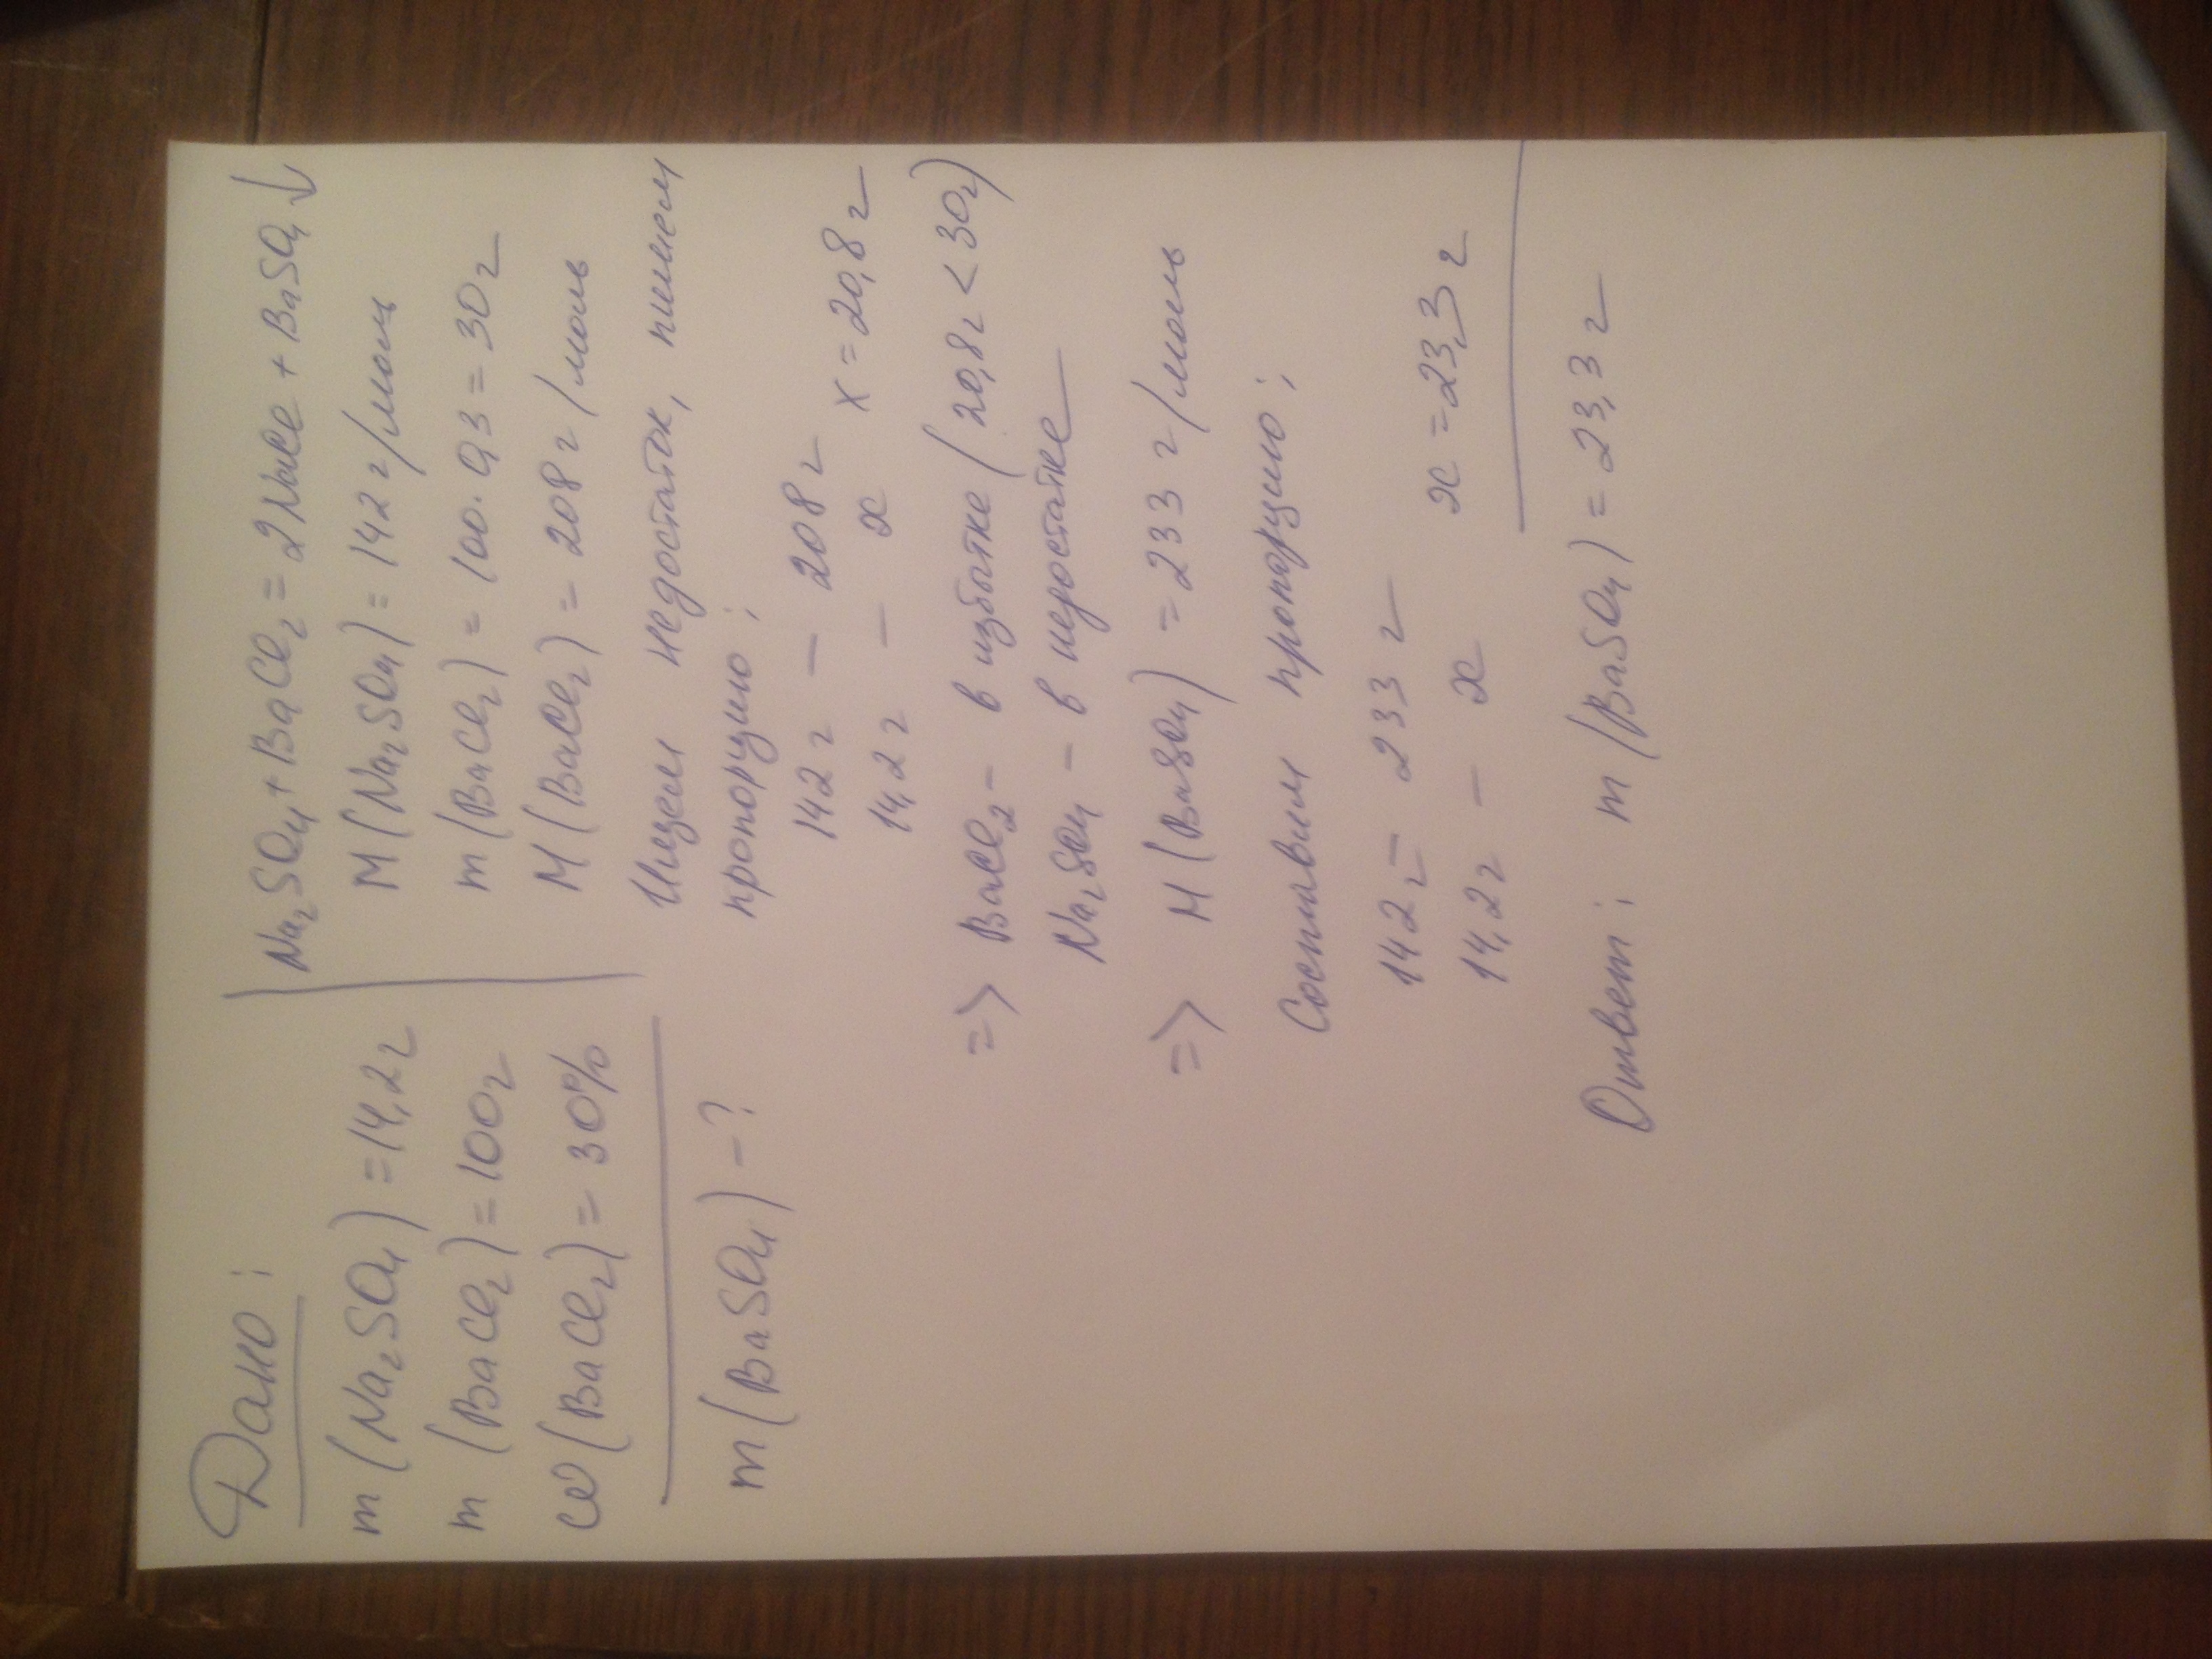 Дано:
m (Na₂SO₄) = 14,2 г
m (BaCl₂) = 100 г
ω (BaCl₂) = 30%
m (BaSO₄) – ?
Na₂SO₄ + BaCl₂ = 2NaCl + BaSO₄ ↓
M (Na₂SO₄) = 142 г/моль
m (BaCl₂) = 100 · 0,3 = 30 г
M (BaCl₂) = 208 г/моль
Ищем недостаток, пишем
пропорцию:
142 г – 208 г
14,2 г – x x = 20,8 г
=> BaCl₂ – в избытке (20,8 г < 30 г)
Na₂SO₄ – в недостатке
=> M (BaSO₄) = 233 г/моль
Составим пропорцию:
142 г – 233 г
14,2 г – x x = 23,3 г
Ответ: m (BaSO₄) = 23,3 г